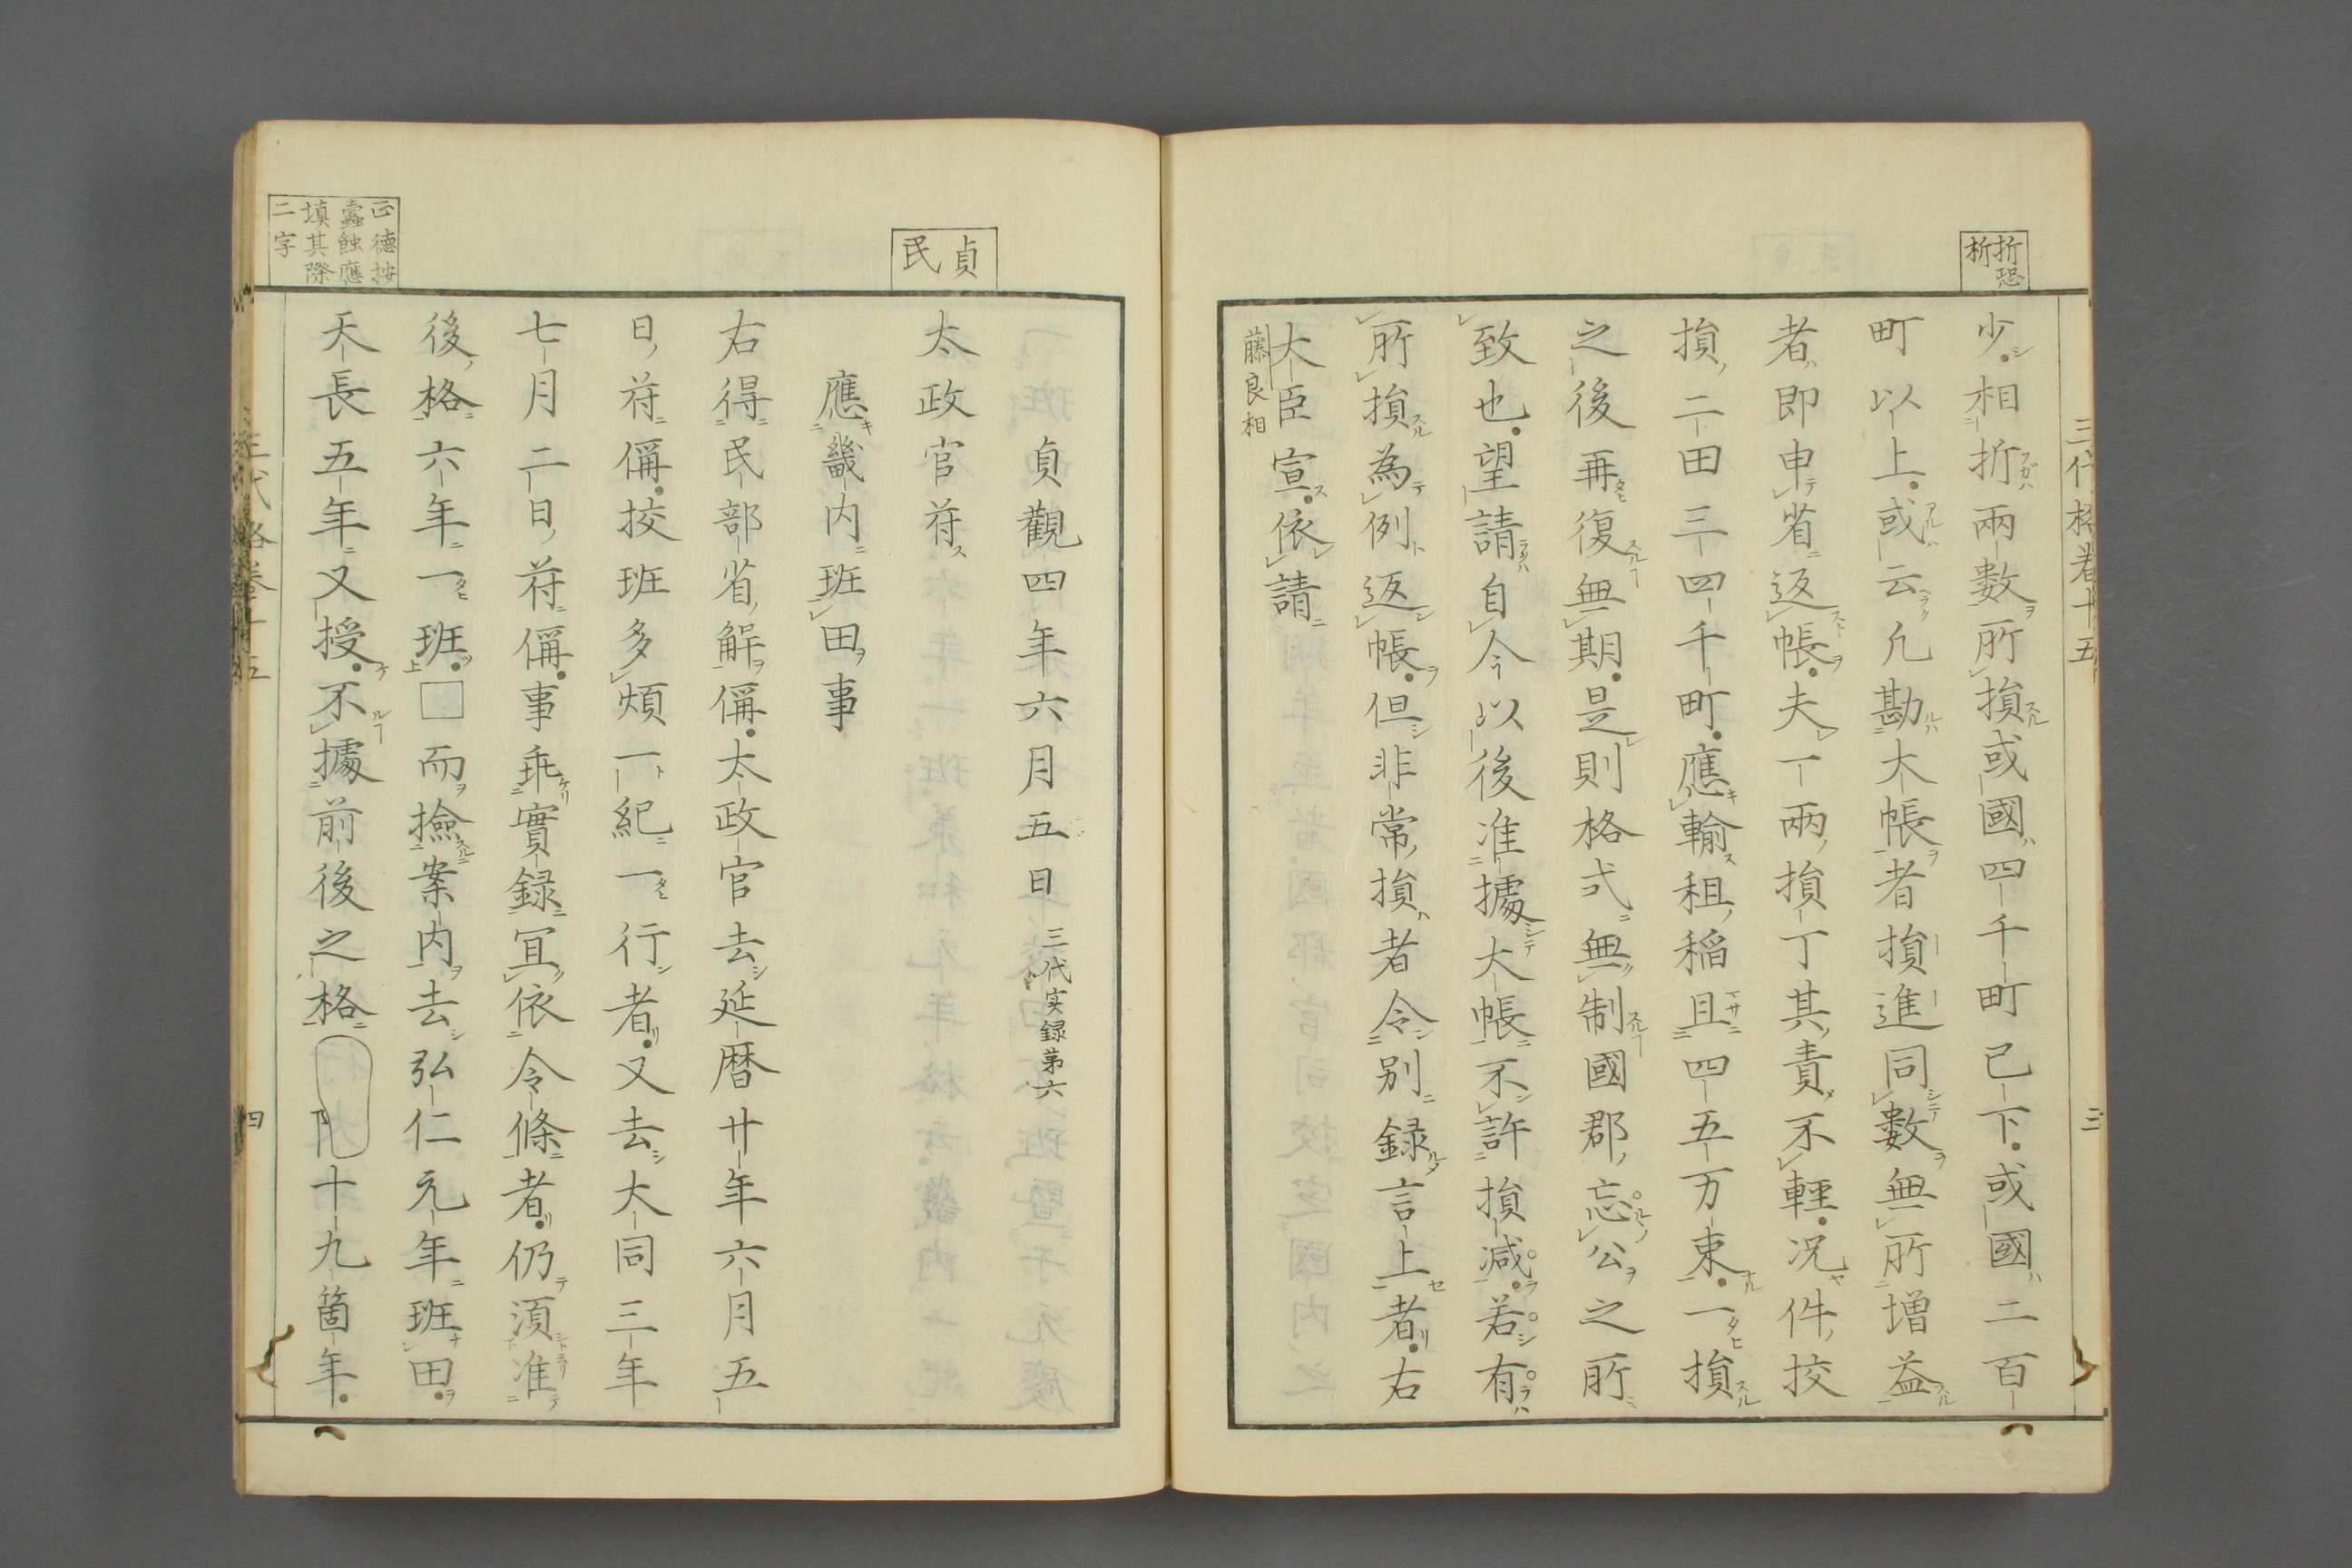 折恐
析
三代格卷十五
三
少相折兩數所損或國四千町已下或國二百
町以上或云凢勘大帳者損進同數無所増益
者即申省返帳夫一兩損丁其責不輕况件挍
損二田三四千町應輸租稲且四五万束一損
之後再復無期是則格式無制國郡忘公之所
致也望請自今以後准據大帳不許損减若有
所損為例返帳但非常損者令別録言上者右
大臣宣依請
藤良相
貞觀四年六月五日 三代実録第六
貞
民
太政官符
應畿内班田事
右得民部省解偁太政官去延暦廿年六月五
日符偁挍班多煩一紀一行者又去大同三年
七月二日符偁事乖實録冝依令條者仍湏准
後格六年一班□而撿案内去弘仁元年班田
天長五年又授不據前後之格 十九箇年
正德按
蠧蝕應
填其際
二字
三代格卷十五
四